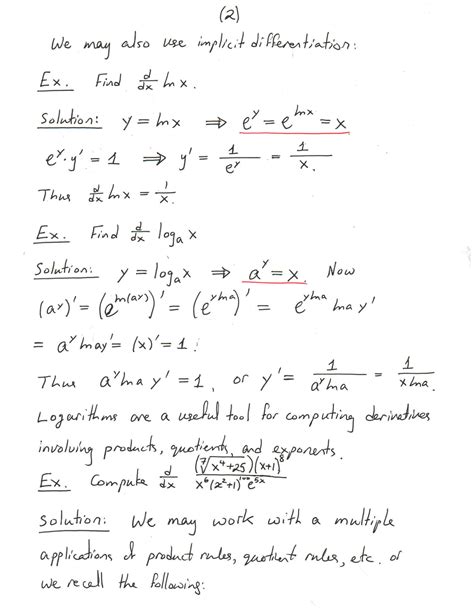 (2)
We may also use implicit differentiation:
Ex. Find d/dx ln x.
Solution: y = ln x ⇒ e^y = e^{ln x} = x
e^y · y' = 1 ⇒ y' = 1/e^y = 1/x.
Thus d/dx ln x = 1/x.
Ex. Find d/dx log_a x
Solution: y = log_a x ⇒ a^y = x. Now
(a^y)' = (e^{ln(a^y)})' = (e^{y ln a})' = e^{y ln a} ln a y'
= a^y ln a y' = (x)' = 1.
Thus a^y ln a y' = 1, or y' = 1/(a^y ln a) = 1/(x ln a).
Logarithms are a useful tool for computing derivatives
involving products, quotients, and exponents.
Ex. Compute d/dx (⁷√(x^4+25))(x+1)^8 / x^6(x^2+1)^{100}e^{5x}
Solution: We may work with a multiple
applications of product rules, quotient rules, etc. or
we recall the following: